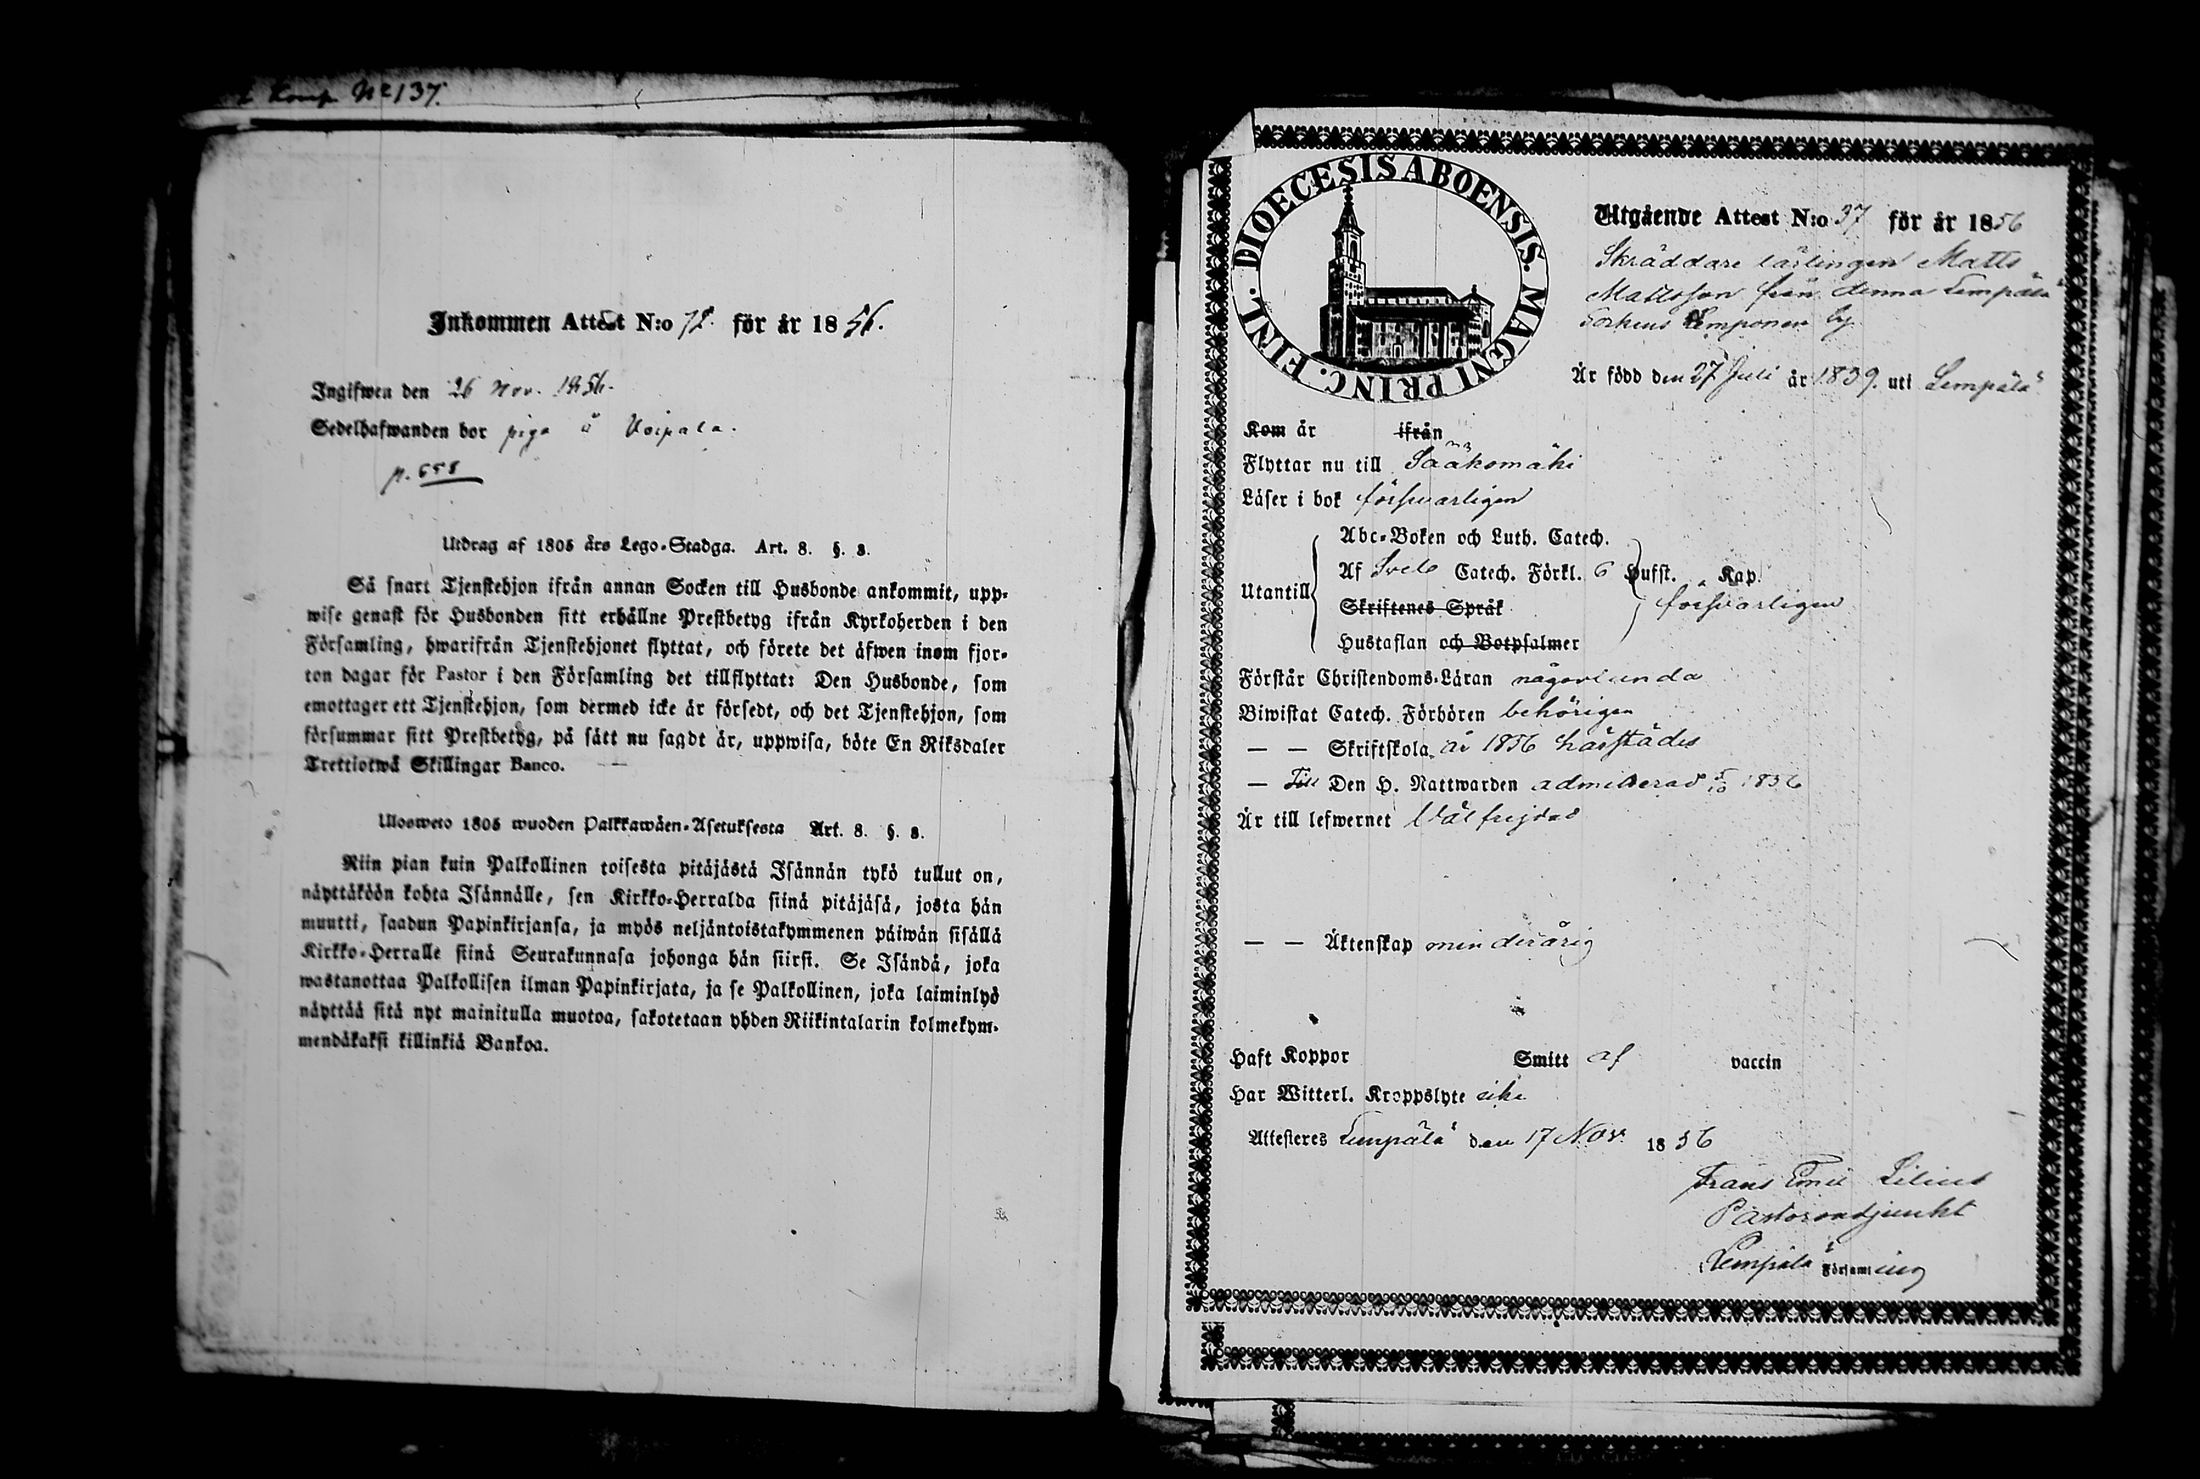 Komp. No 137.
Inkommen Attest N:o 72. för år 1856.
Ingifwen den 26 Nov. 1856.
Sedelhafwanden bor piga å Voipala.
p. 658
Utdrag af 1805 års Lego-Stadga. Art. 8. §. 8.
Så snart Tjenstehjon ifrån annan Socken till Husbonde ankommit, upp-
wise genast för Husbonden sitt erhållne Prestbetyg ifrån Kyrkoherden i den
Församling, hwarifrån Tjenstehjonet flyttat, och förete det äfwen inom fjor-
ton dagar för Pastor i den Församling det tillflyttat: Den Husbonde, som
emottager ett Tjenstehjon, som dermed icke är försedt, och det Tjenstehjon, som
försummar sitt Prestbetyg, på sätt nu sagdt är, uppwisa, böte En Riksdaler
Trettiotwå Skillingar Banco.
Ulosweto 1805 wuoden Palkkawäen-Asetuksesta Art. 8. §. 8.
Niin pian kuin Palkollinen toisesta pitäjästä Isännän tykö tullut on,
näyttäköön kohta Isännälle, sen Kirkko-Herralda siinä pitäjäsä, josta hän
muutti, saadun Papinkirjansa, ja myös neljäntoistakymmenen päiwän sisällä
Kirkko-Herralle siinä Seurakunnasa johonga hän siirsi. Se Isändä, joka
wastanottaa Palkollisen ilman Papinkirjata, ja se Palkollinen, joka laiminlyö
näyttää sitä nyt mainitulla muotoa, sakotetaan yhden Riikintalarin kolmekym-
mendäkaksi killinkiä Bankoa.
DIOECESIS ABOENSIS. MAGNI PRINC. FINL.
Utgående Attest N:o 37 för år 1856
Skräddare lärlingen Matts
Mattsson från denna Lempälä
Sockens Lemponen by
Är född den 27 Juli år 1839. uti Lempälä
Kom år ifrån
Flyttar nu till Sääksmäki
Läser i bok försvarligen
Abc-Boken och Luth. Catech.
Af Svebe Catech. Förkl. 6 Hufst. Kap.
Utantill
Skriftenes Språk
försvarligen
Hustaflan och Botpsalmer
Förstår Christendoms-Läran någorlunda
Biwistat Catech. Förhören behörigen
— — Skriftskola år 1856 härstädes
— Till Den H. Nattwarden admitterad 5/10 1856
Är till lefwernet Välfrejdad
— — Äktenskap minderårig
Haft Koppor Smitt af vaccin
Har Witterl. Kroppslyte icke
Attesteres Lempälä den 17 Nov. 1856
Frans Emil Lilius
Pastorsadjunkt
Lempälä Församling